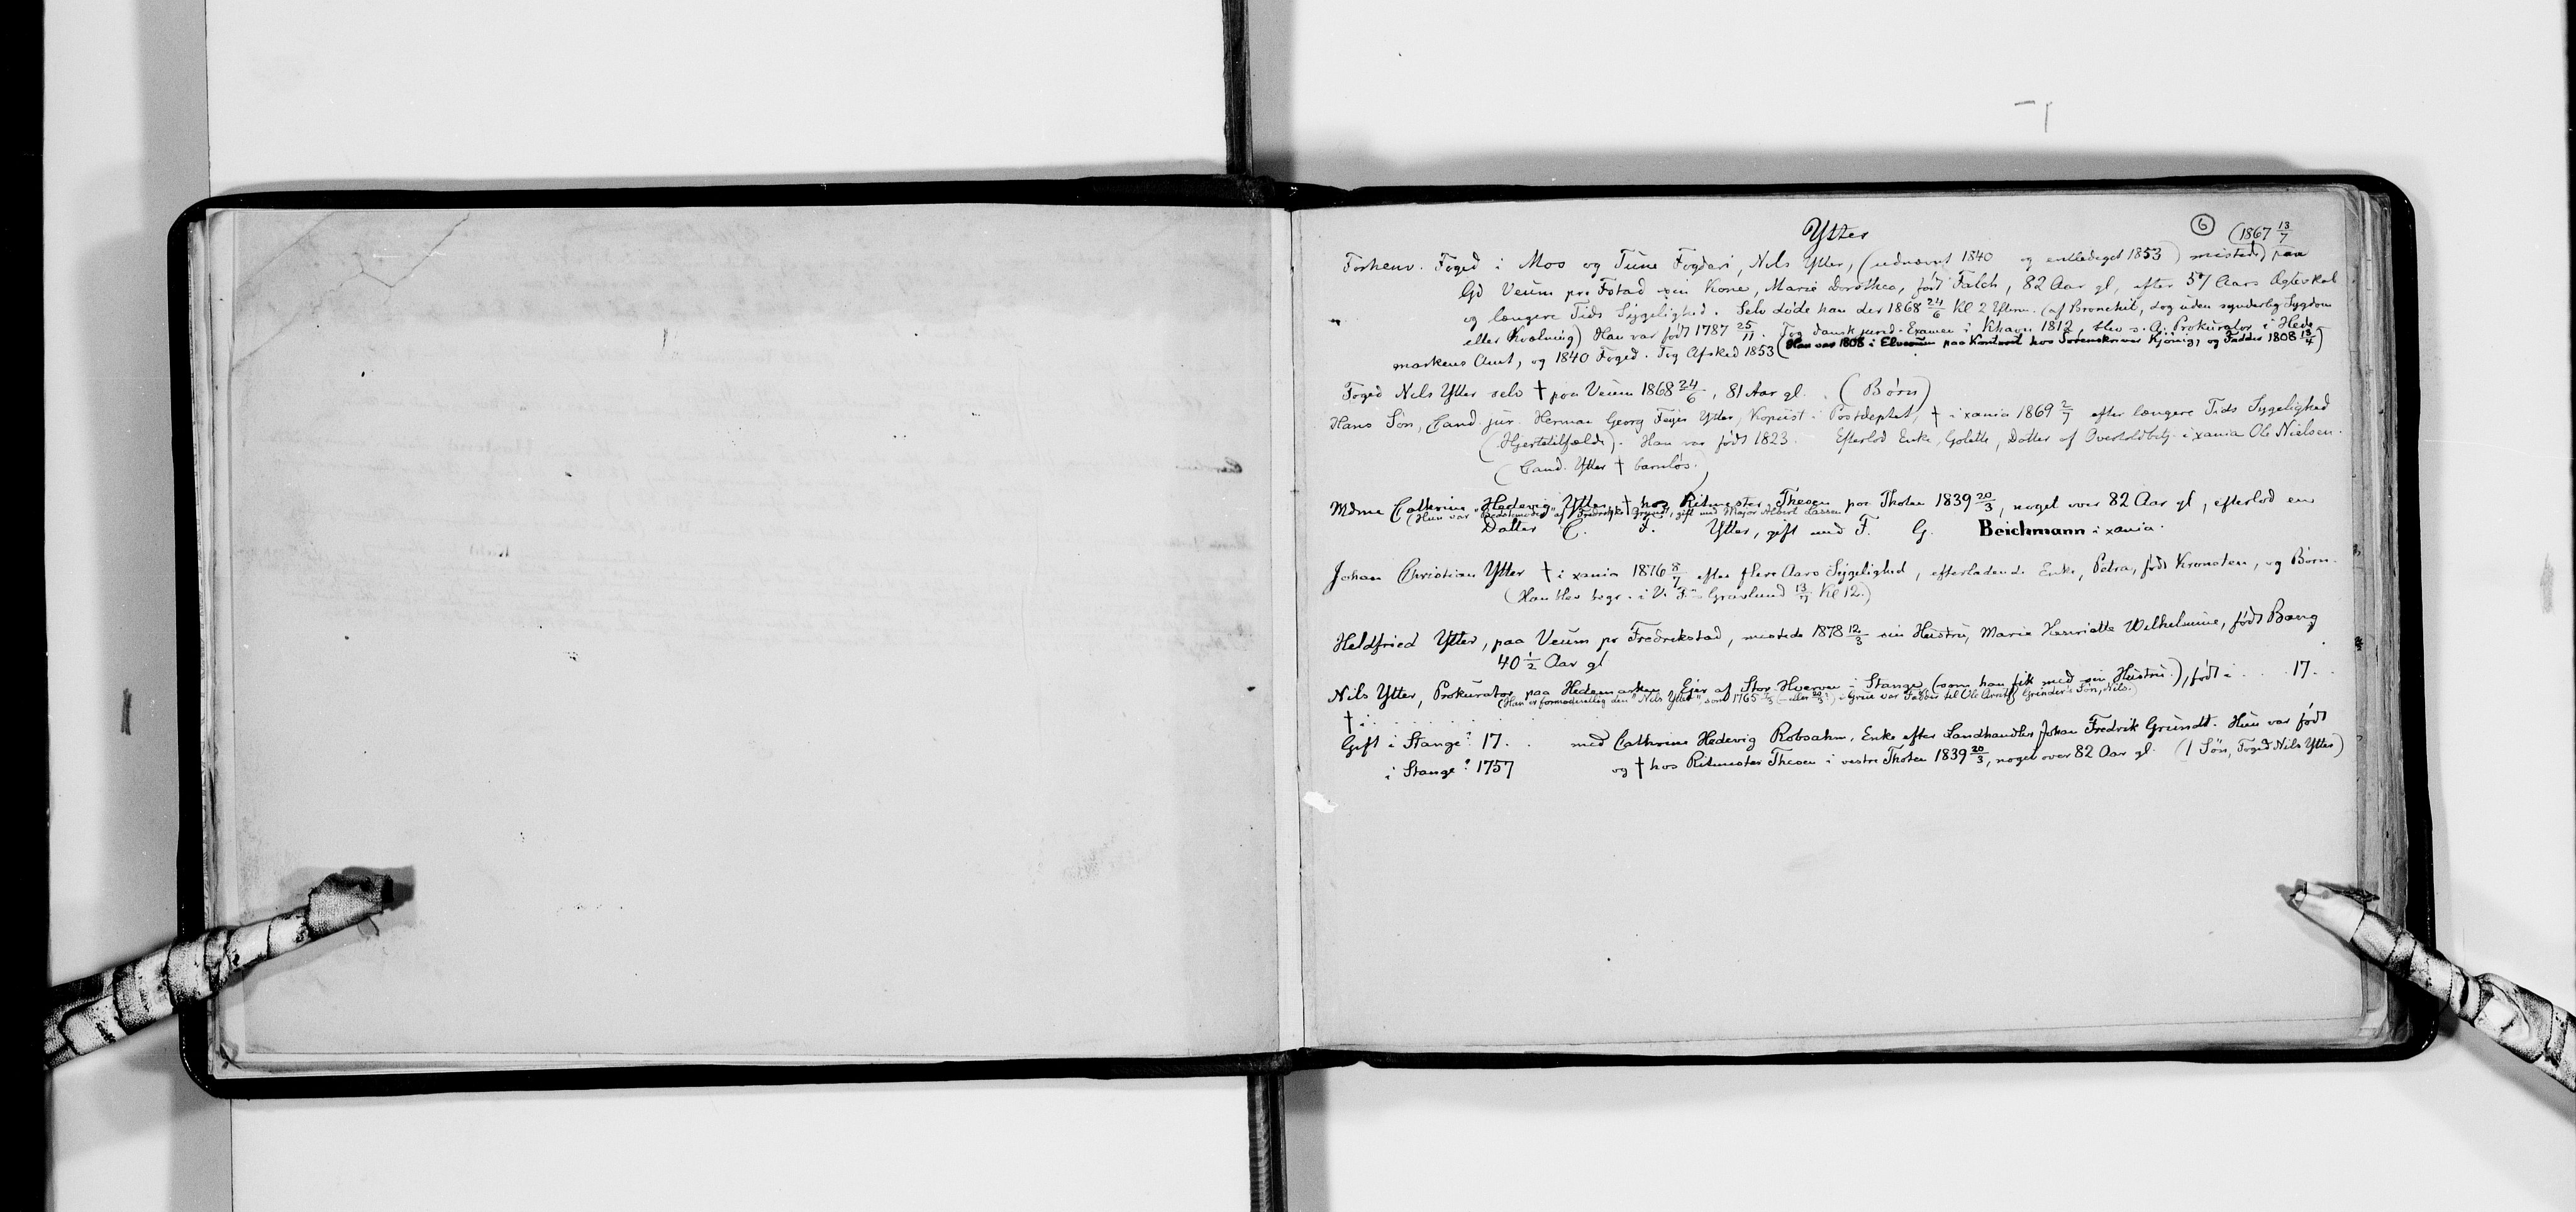 Ytter
6
(1867 13/7
Forhenv. Foged i Mos og Tune Fogderi, Nils Ytter, (udnævnt 1840 og entlediget 1853) mistede) paa
Gd Veum pr. Fstad sin Kone, Marie Dorothea, født Falch, 82 Aar gl, efter 57 Aars Ægteskab
og længere Tids Sygelighed. Selv døde han der 1868 24/6 Kl 2 Efterm. (af Bronchit, dog uden synderlig Sygdom
eller Kvælning) Han var født 1787 25/11. Tog dansk jurid. Examen i Khavn 1812, blev s. A. Prokurator i Hede-
markens Amt, og 1840 Foged. Tog Afsked 1853 (Han var 1808 i Elverum paa Kontoret hos Sorenskriver Kjönig, og Fadder 1808 13/4)
Foged Nils Ytter selv † paa Veum 1868 24/6, 81 Aar gl. (Börn)
Hans Sön, Cand. jur. Herman Georg Feyer Ytter, Kopiist i Postdeptet, † i xania 1869 2/7 efter længere Tids Sygelighed
(Hjertetilfælde). Han var født 1823. Efterlod Enke, Golette, Datter af Overtoldbetj. i xania Ole Nielsen.
(Cand. Ytter † barnløs.)
Mdme Cathrine Hedevig Ytter † hos Ritmester Thesen paa Thoten 1839 20/3, noget over 82 Aar gl, efterlod en
(Hun var "Bedstemoder" af Fredrikke Grundt, gift med Major Albert Lassen
Datter C. F. Ytter, gift med F. G. Beichmann i xania.
Johan Christian Ytter † i xania 1876 8/7 efter flere Aars Sygelighed, efterladende Enke, Petra, født Kronsten, og Börn.
(Han blev begr. i V. F.s Gravlund 13/7 Kl 12.)
Heldfried Ytter, paa Veum pr Fredrikstad, mistede 1878 12/3 sin Hustru, Marie Henriette Wilhelmine, født Bang
40 1/2 Aar gl
Nils Ytter, Prokurator paa Hedemarken, Ejer af Stor-Hverven i Stange (som han fik med sin Hustru.), født i . . . 17. .
(Han er formodentlig den "Nils Ytter", som 1765 (eller i Grue var Fadder til Ole Grinder's Sön, Nils.)
† i . . . . . .
Gift i Stange? 17. . med Cathrine Hedevig Robsahm, Enke efter Landhandler Johan Fredrik Grundt. Hun var født
i Stange? 1757 og † hos Ritmester Thesen i vestre Thoten 1839 20/3, noget over 82 Aar gl. (1 Sön, Foged Nils Ytter)